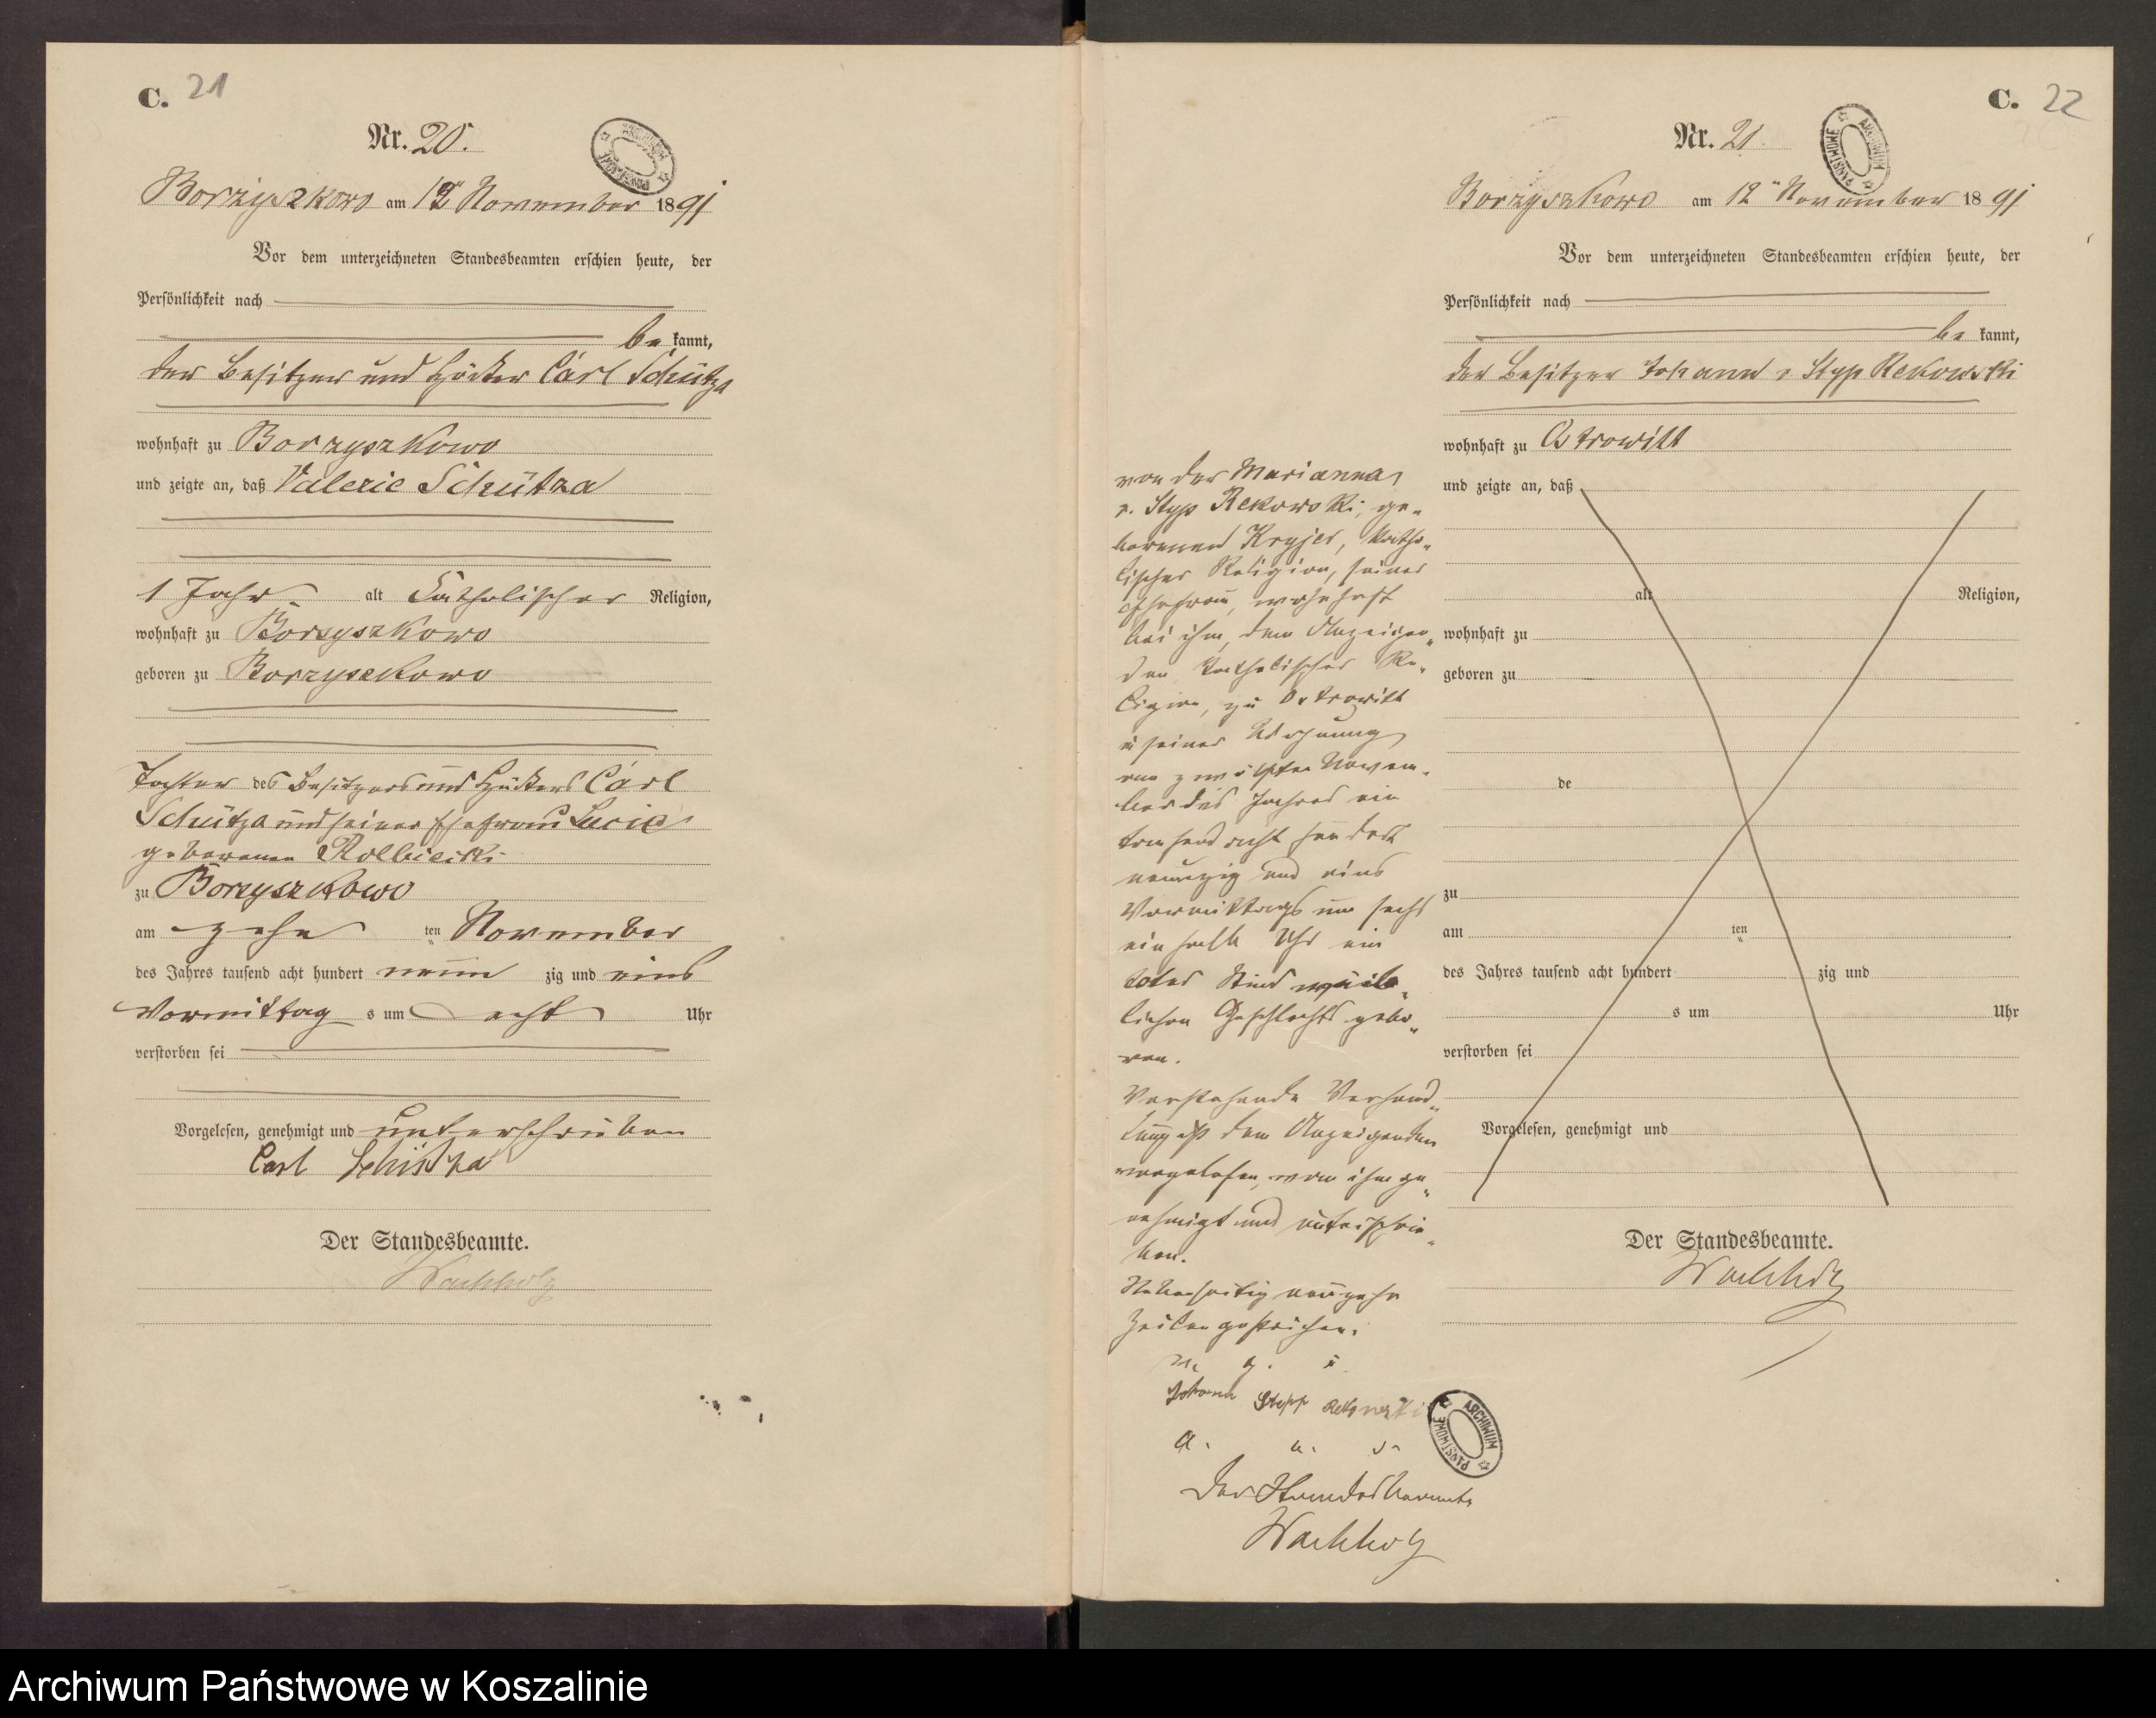 C. 21
Nr. 20.
ARCHIWUM PAŃSTWOWE
Borzyszkowo am 12 November 1891
Vor dem unterzeichneten Standesbeamten erschien heute, der
Persönlichkeit nach
be kannt,
der Besitzer und Höcker Carl Schütza
wohnhaft zu Borzyszkowo
und zeigte an, daß Valerie Schütza
1 Jahr alt katholischer Religion,
wohnhaft zu Borzyszkowo
geboren zu Borzyszkowo
Tochter des Besitzers und Höckers Carl
Schütza und seiner Ehefrau Lucie
geborenen Rolbiecki
zu Borzyszkowo
am zehn ten November
des Jahres tausend acht hundert neun zig und eins
Vormittag s um acht Uhr
verstorben sei
Vorgelesen, genehmigt und unterschrieben
Carl Schützа
Der Standesbeamte.
Wachholz
C. 22
Nr. 21.
ARCHIWUM PAŃSTWOWE
Borzyszkowo am 12ten November 1891
Vor dem unterzeichneten Standesbeamten erschien heute, der
Persönlichkeit nach
be kannt,
der Besitzer Johann v Styp Rekowski
wohnhaft zu Ostrowitt
und zeigte an, daß
alt Religion,
wohnhaft zu
geboren zu
de
zu
am ten
des Jahres tausend acht hundert zig und
s um Uhr
verstorben sei
Vorgelesen, genehmigt und
Der Standesbeamte.
Wachholz
von der Marianna
v. Styp Rekowski, ge-
borenen Kryjer, katho-
lischer Religion, seiner
Ehefrau, wohnhaft
bei ihm, dem Anzeigen-
den, katholischer Re-
ligion, zu Ostrowitt
in seiner Wohnung
am zwölften Novem-
ber des Jahres ein
tausend acht hundert
neunzig und eins
Vormittags um sechs
ein halb Uhr ein
todtes Kind weib-
lichen Geschlechts gebo-
ren.
Vorstehende Verhand-
lung ist dem Anzeigenden
vorgelesen, von ihm ge-
nehmigt und unterschrie-
ben.
Nebenseitig neunzehn
Zeilen gestrichen.
v. g. u.
Johann Stypp Rekowski
a. u. s.
Der Standesbeamte
Wachholz
ARCHIWUM PAŃSTWOWE
Archiwum Państwowe w Koszalinie